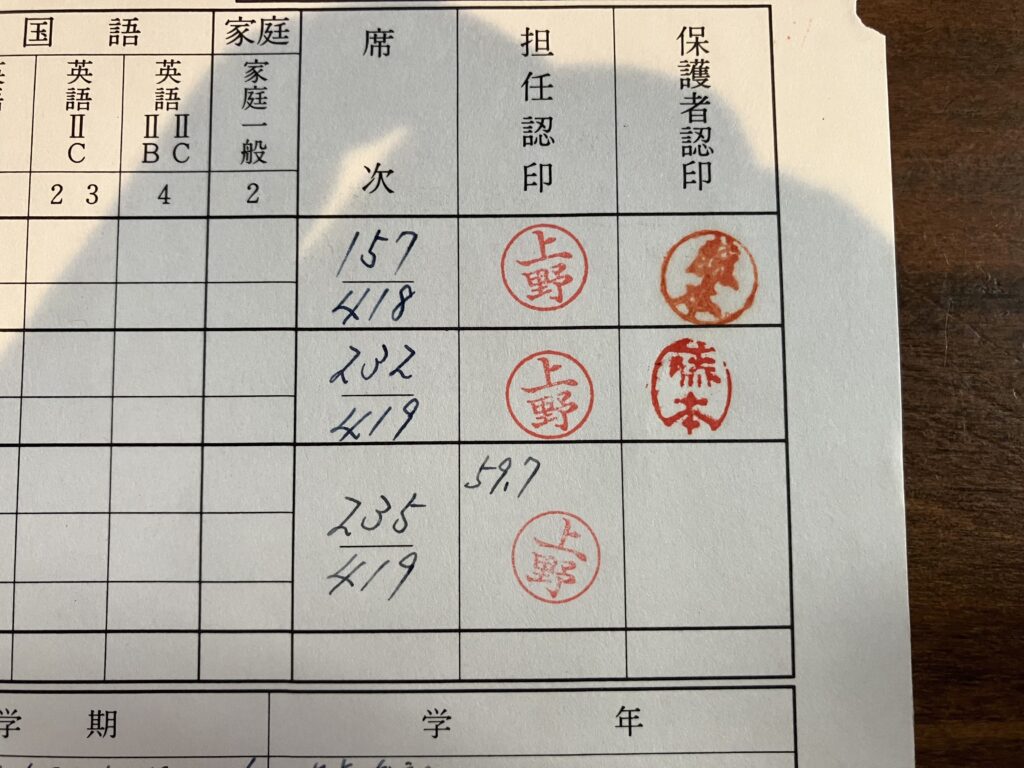 国語
家庭
席次
担任認印
保護者認印
英語ⅡC
英語ⅡB ⅡC
家庭一般
2 3
4
2
157
418
上野
232
419
上野
熊本
59.7
235
419
上野
学期
学年